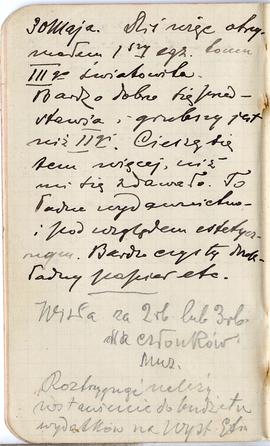 30 Maja. Dziś więc otrzy-
małem 1szy egz. tomu
III go Światowita.
Bardzo dobrze się przed-
stawia i grubszy jest
niż II gi. Cieszę się
tem więcej, niż
mi się zdawało. To
ładne wydawnictwo
i pod względem estetycz-
nym. Bardzo czysty druk
ładny papier etc.
Wisła za 2rb lub 3rb.
dla członków
Muz.
wstawienie do budżetu
wydatków na Wyst.